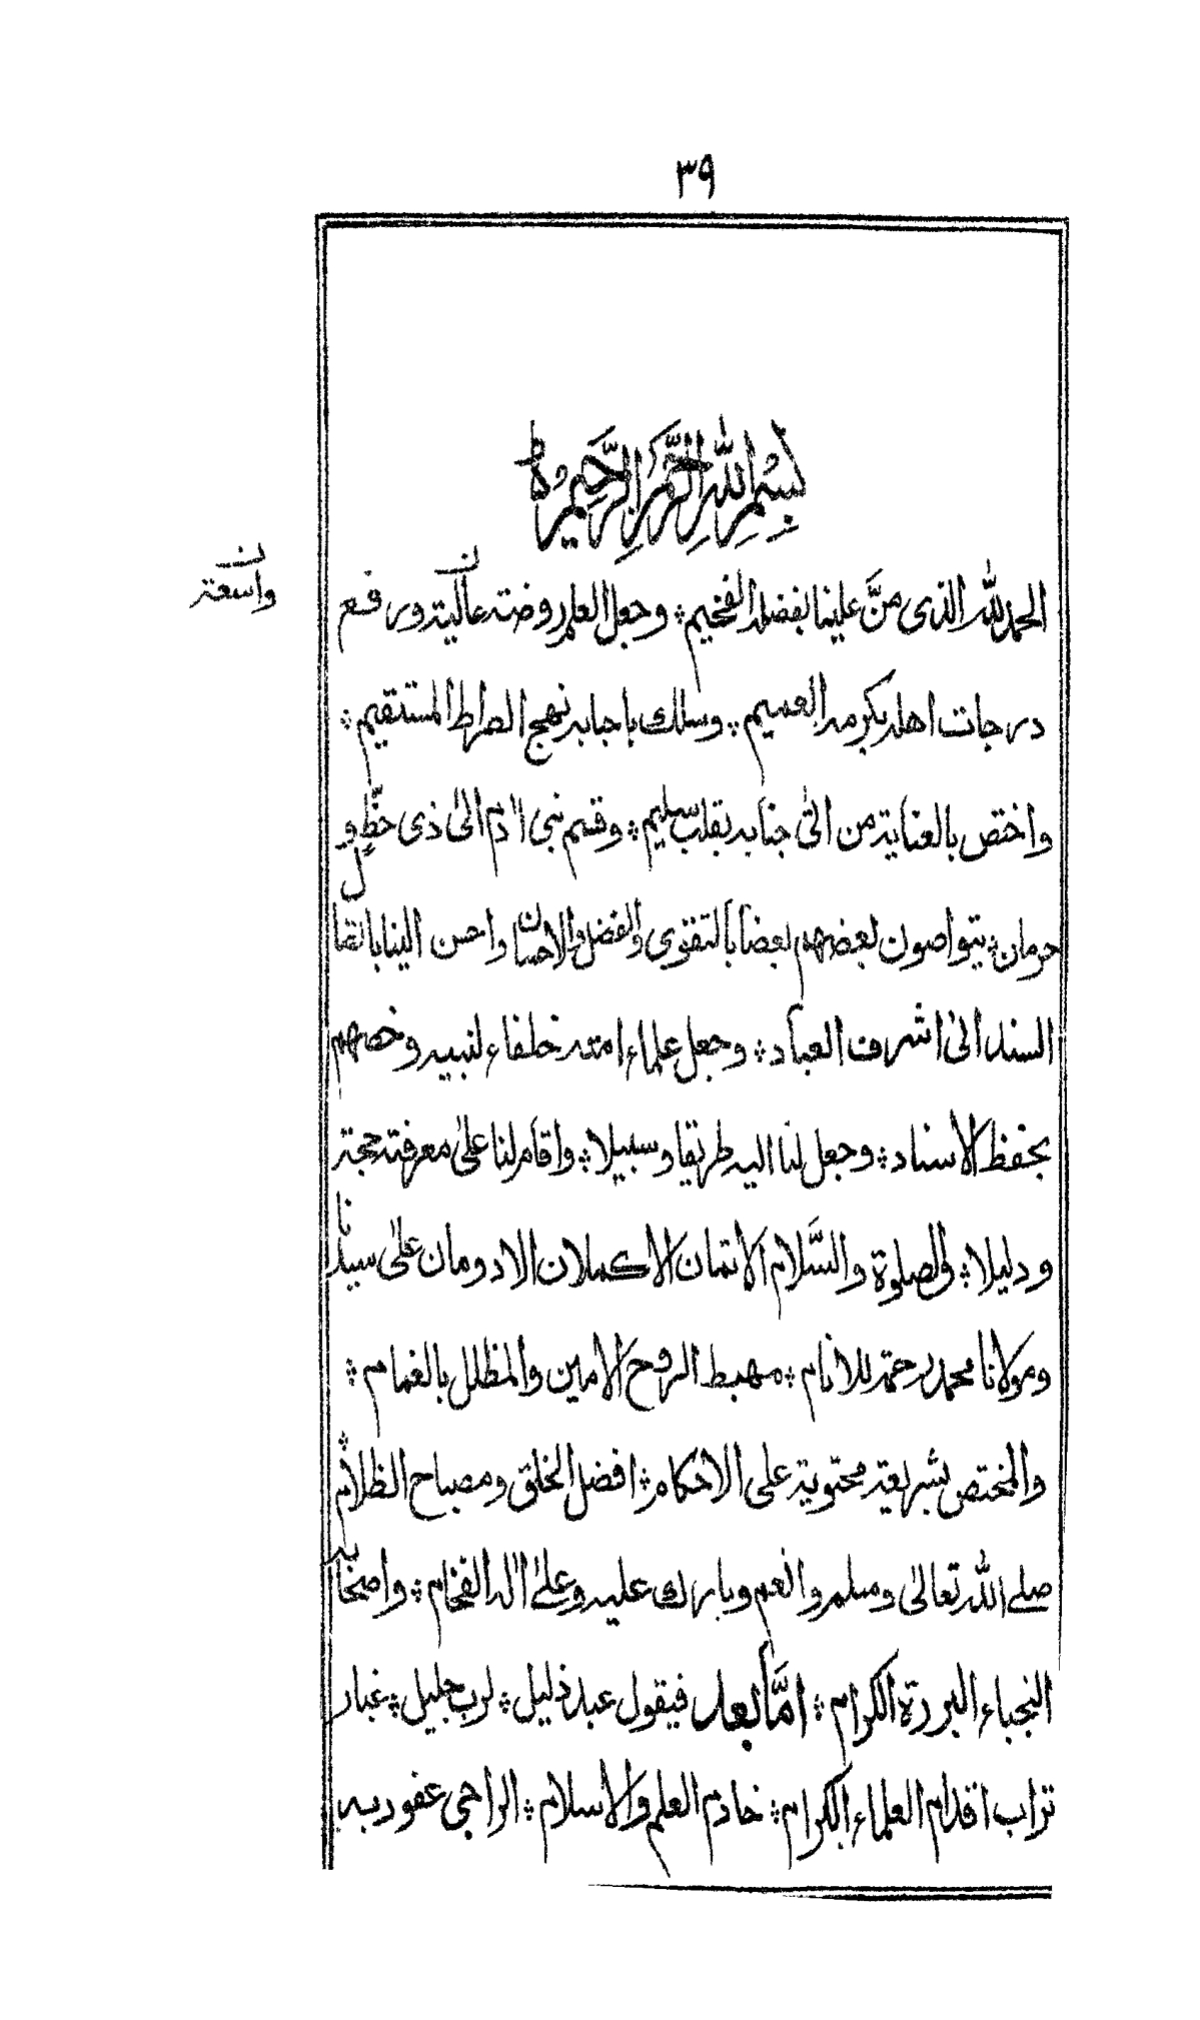 ٣٩
بِسْمِ اللّٰهِ الرَّحْمٰنِ الرَّحِيْمِ ۞
الحمد للّٰه الذى منَّ علينا بفضله الفخيم ؛ وجعل العلم روضته عالية ورفع
ن
واسعة
درجات اهله بكرمه العميم ؛ وسلك باحبابه نهج الصراط المستقيم ؛
واختص بالعناية من اتى جنابه بقلب سليم ؛ وقسم بنى اٰدم الى ذى حظٍّ و
حرمان ؛ يتواصون بعضهم بعضا بالتقوى والفضل والاحسان واحسن الينا باتقال
السند الى اشرف العباد ؛ وجعل علماء امته خلفاء لنبيه وخصهم
بحفظ الاسناد ؛ وجعل لنا اليه طريقا وسبيلا ؛ واقام لنا على معرفته حجة
ودليلا ؛ والصلوة والسَّلام الاتمان الاكملان الادومان على سيدنا
ومولانا محمد رحمة للانام ؛ مهبط الروح الامين والمظلل بالغمام ؛
والمختص بشريعة محتوية على الاحكام ؛ افضل الخلق ومصباح الظلام ؛
صلے اللّٰه تعالى وسلم وانعم وبارك عليه وعلى اٰله الفخام ؛ واصحابه
النجباء البررة الكرام ؛ امَّا بعد فيقول عبد ذليل ؛ لرب جليل ؛ غبار
تراب اقدام العلماء الكرام ؛ خادم العلم والاسلام ؛ الراجى عفو ربه